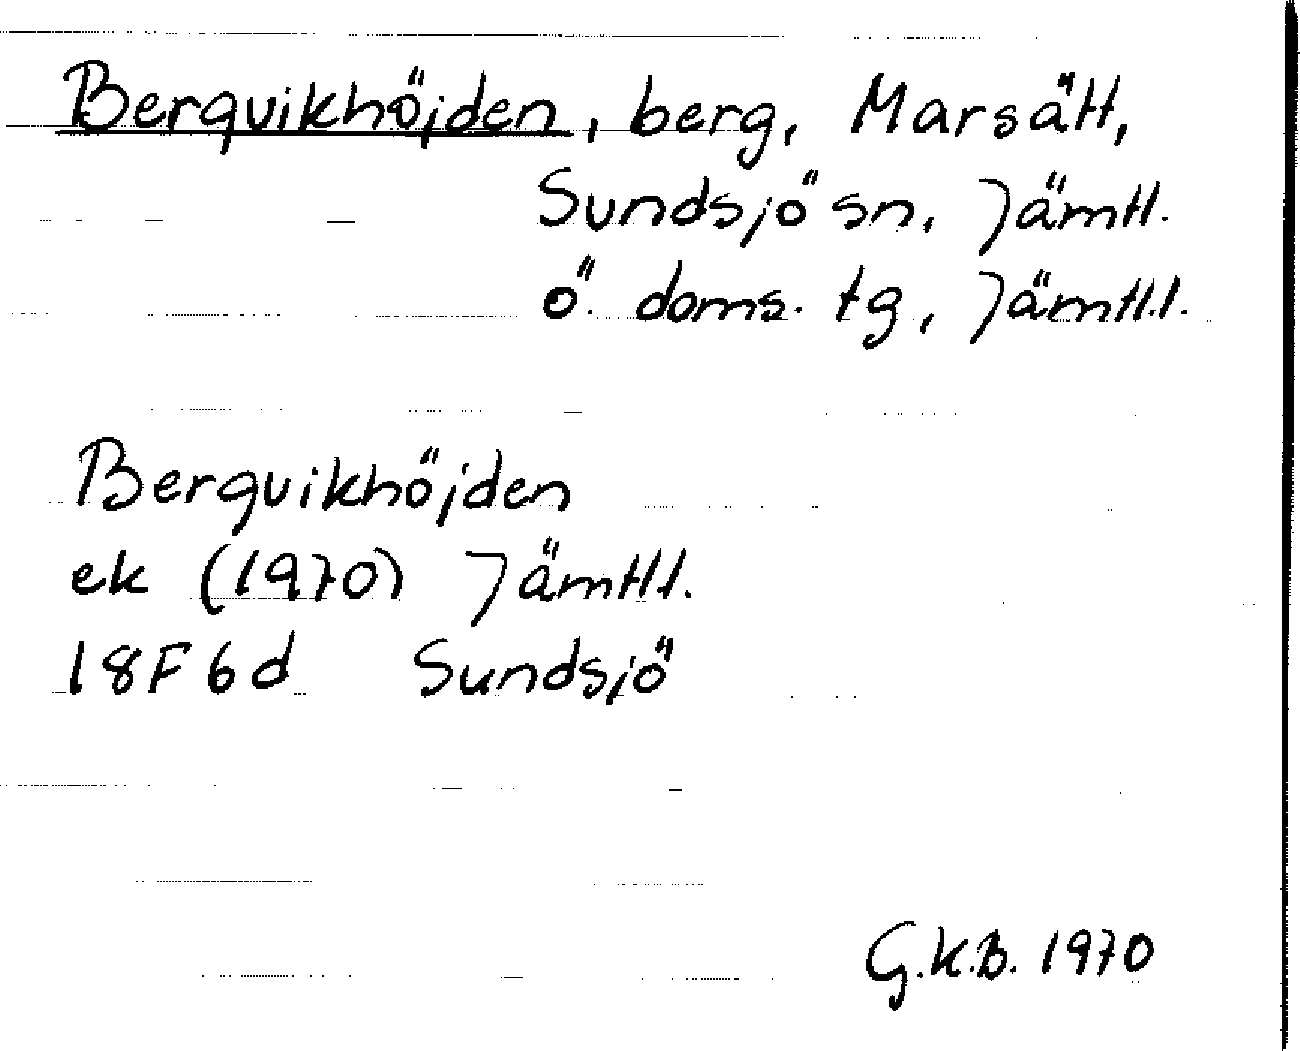 Bergvikhöjden, berg, Marsätt,
Sundsjö sn, Jämtl.
ö. doms. tg, Jämtl.l.
Bergvikhöjden
ek (1970) Jämtl.l.
18F 6d Sundsjö
G.K.B. 1970